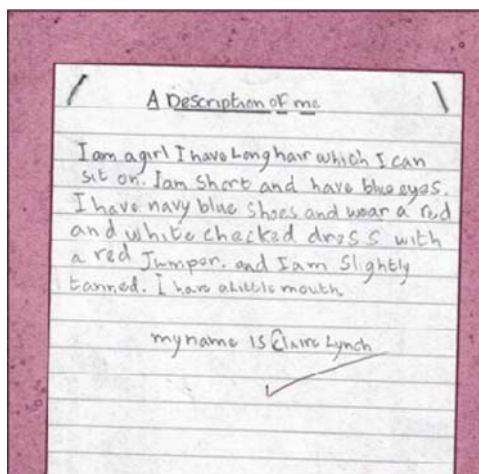 A Description of me
I am a girl I have Long hair which I can
sit on. I am short and have blue eyes.
I have navy blue shoes and wear a red
and white checked dress with
a red Jumper. and I am slightly
tanned. I have a little mouth.
my name is Claire Lynch